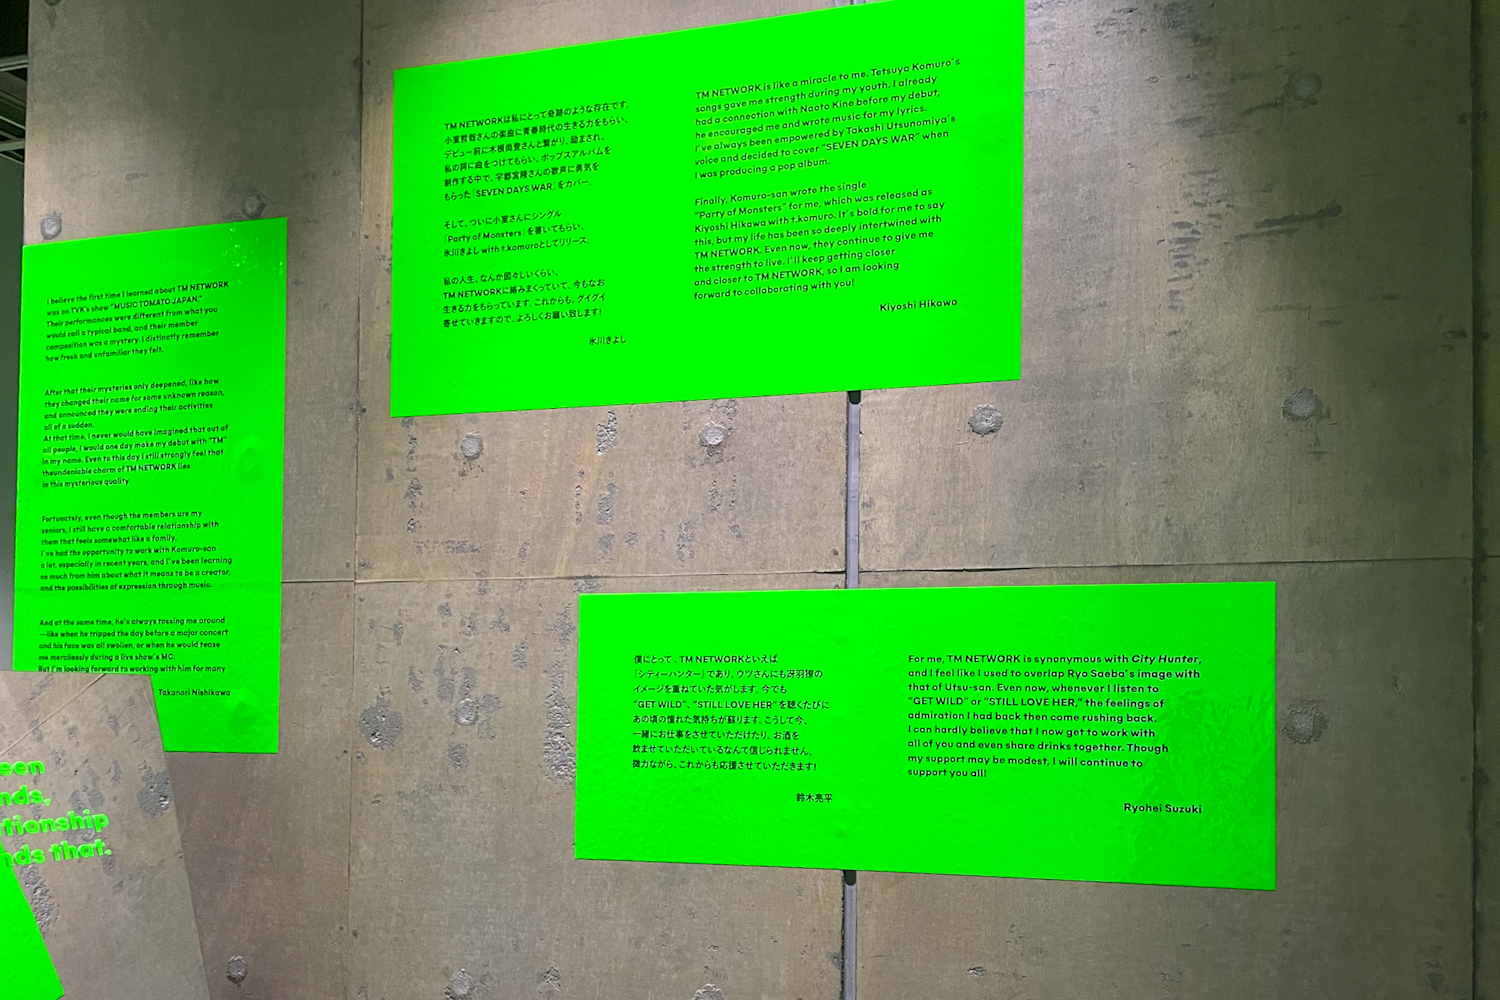 I believe the first time I learned about TM NETWORK
was on TVK's show "MUSIC TOMATO JAPAN."
Their performances were different from what you
would call a typical band, and their member
composition was a mystery. I distinctly remember
how fresh and unfamiliar they felt.
After that their mysteries only deepened, like how
they changed their name for some unknown reason,
and announced they were ending their activities
all of a sudden.
At that time, I never would have imagined that out of
all people, I would one day make my debut with "TM"
in my name. Even to this day I still strongly feel that
theundeniable charm of TM NETWORK lies
in this mysterious quality.
Fortunately, even though the members are my
seniors, I still have a comfortable relationship with
them that feels somewhat like a family.
I've had the opportunity to work with Komuro-san
a lot, especially in recent years, and I've been learning
so much from him about what it means to be a creator,
and the possibilities of expression through music.
And at the same time, he's always tossing me around
—like when he tripped the day before a major concert
and his face was all swollen, or when he would tease
me mercilessly during a live show's MC.
But I'm looking forward to working with him for many
Takanori Nishikawa
een
nds.
tionship
nds that.
TM NETWORKは私にとって奇跡のような存在です。
小室哲哉さんの楽曲に青春時代の生きる力をもらい、
デビュー前に木根尚登さんと繋がり、励まされ、
私の詞に曲をつけてもらい、ポップスアルバムを
創作する中で、宇都宮隆さんの歌声に勇気を
もらった「SEVEN DAYS WAR」をカバー。
そして、ついに小室さんにシングル
「Party of Monsters」を書いてもらい、
氷川きよし with t.komuroとしてリリース。
私の人生、なんか図々しいくらい、
TM NETWORKに絡みまくっていて、今もなお
生きる力をもらっています。これからも、グイグイ
寄せていきますので、よろしくお願い致します!
氷川きよし
TM NETWORK is like a miracle to me. Tetsuya Komuro's
songs gave me strength during my youth. I already
had a connection with Naoto Kine before my debut,
he encouraged me and wrote music for my lyrics.
I've always been empowered by Takashi Utsunomiya's
voice and decided to cover "SEVEN DAYS WAR" when
I was producing a pop album.
Finally, Komuro-san wrote the single
"Party of Monsters" for me, which was released as
Kiyoshi Hikawa with t.komuro. It's bold for me to say
this, but my life has been so deeply intertwined with
TM NETWORK. Even now, they continue to give me
the strength to live. I'll keep getting closer
and closer to TM NETWORK, so I am looking
forward to collaborating with you!
Kiyoshi Hikawa
僕にとって、TM NETWORKといえば
「シティーハンター」であり、ウツさんにも冴羽獠の
イメージを重ねていた気がします。今でも
"GET WILD"、"STILL LOVE HER"を聴くたびに
あの頃の憧れた気持ちが蘇ります。こうして今、
一緒にお仕事をさせていただけたり、お酒を
飲ませていただいているなんて信じられません。
微力ながら、これからも応援させていただきます!
鈴木亮平
For me, TM NETWORK is synonymous with City Hunter,
and I feel like I used to overlap Ryo Saeba's image with
that of Utsu-san. Even now, whenever I listen to
"GET WILD" or "STILL LOVE HER," the feelings of
admiration I had back then come rushing back.
I can hardly believe that I now get to work with
all of you and even share drinks together. Though
my support may be modest, I will continue to
support you all!
Ryohei Suzuki